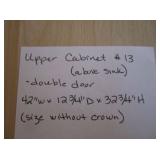 Upper Cabinet # 13
(above sink)
-double door
42"W x 12 3/4"D x 32 3/4"H
(size without crown)